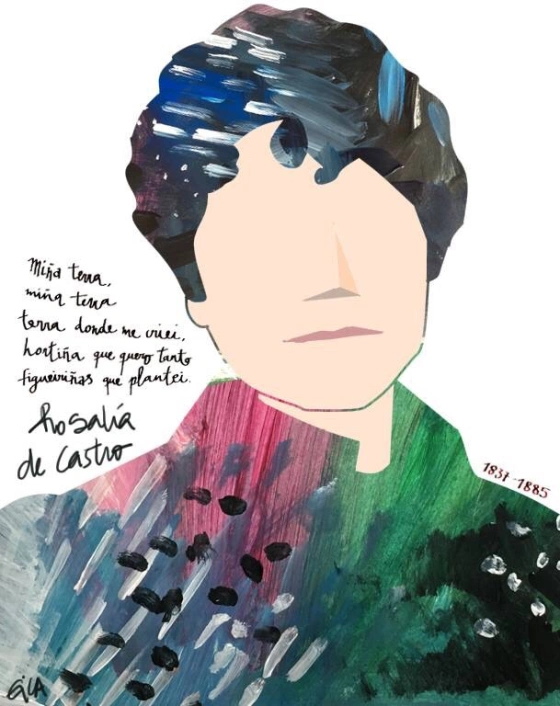 Miña terra,
miña terra
terra donde me criei,
hortiña que quero tanto
figueiriñas que plantei.
Rosalía
de Castro
1837-1885